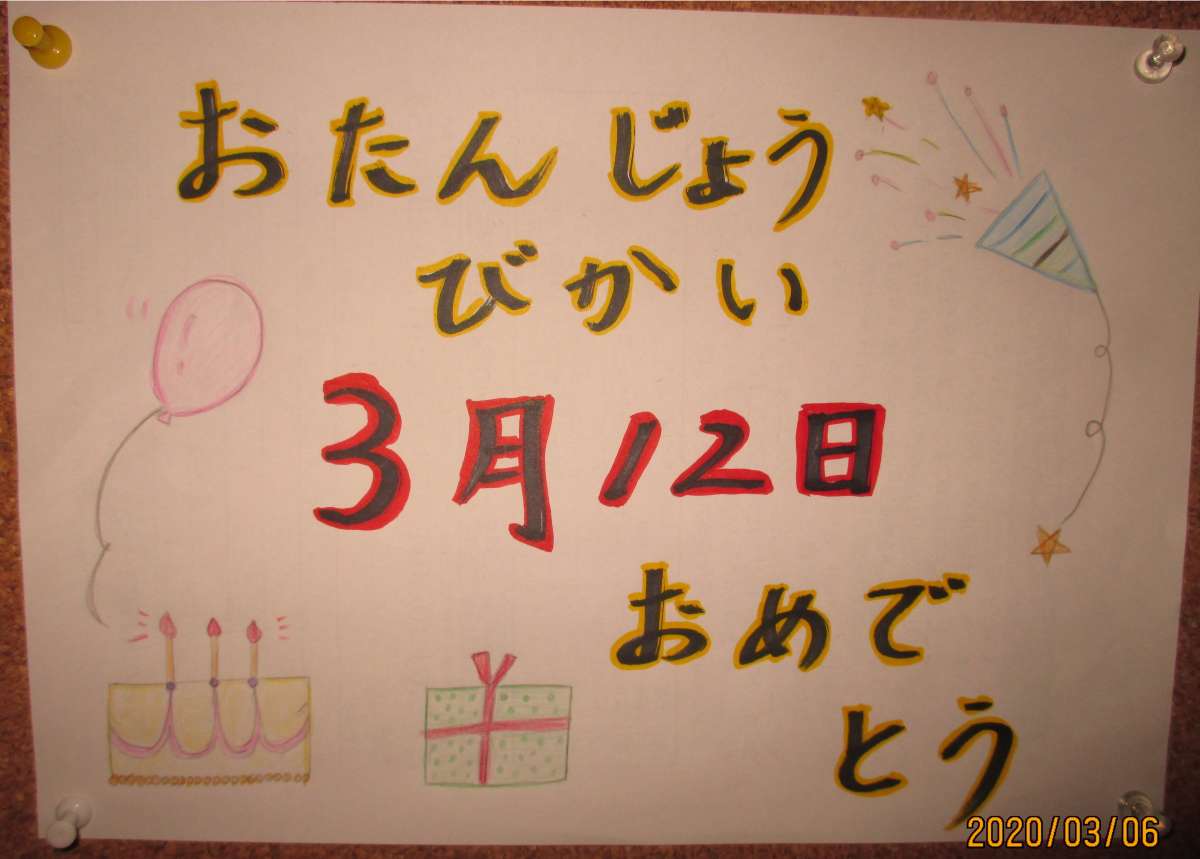 おたんじょう
びかい
3月12日
おめで
とう
2020/03/06